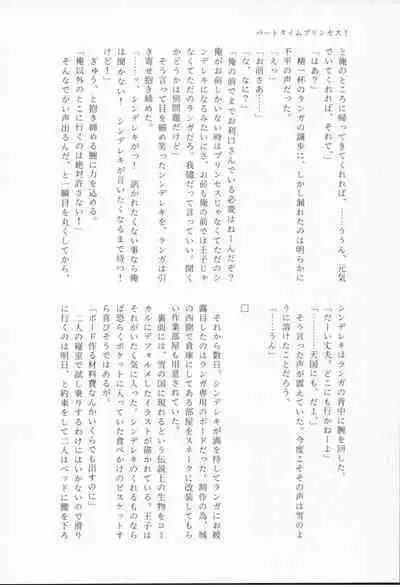 パートタイムプリンセス！
と俺のところに帰ってきてくれれば、……ううん、元気
でいてくれれば、それで」
「はあ？」
精一杯のランガの譲歩に、しかし漏れたのは明らかに
不平の声だった。
「えっ」
「お前さあ……」
「な、なに？」
「俺の前でまでお利口さんでいる必要はねーんだぞ？
俺がお前しかいない時はプリンセスじゃなくてただのシ
ンデレキになるみたいにさ、お前も俺の前では王子じゃ
なくてただのランガだろ。我儘だって言っていい。聞く
かどうかは別問題だけど」
そう言って目を細め笑ったシンデレキを、ランガは引
き寄せ抱き締めた。
「……ッ、シンデレキがっ！　訊かれたくない事なら俺
は聞かない！　シンデレキが言いたくなるまで待つ！
けど！」
ぎゅう、と抱き締める腕に力を込める。
「俺以外のとこに行くのは絶対許さない！」
そんなでかい声出るんだ、と一瞬目を丸くしてから、
シンデレキはランガの背中に腕を回した。
「だーい丈夫。どこにも行かねーよ」
「……天国にも、だよ。」
そう言った声が震えていた。今度こそその声は雪のよ
うに溶けたことだろう。
「……うん」
□
それから数日、シンデレキが満を持してランガにお披
露目したのはランガ専用のボードだった。制作の為、城
の西側で倉庫にしてある部屋をスネークに改装してもら
い作業部屋も用意されていた。
裏面には、雪の国に現れるという伝説上の生物をコミ
カルにデフォルメしたイラストが描かれている。王子は
それがいたく気に入った。シンデレキのくれるものなら
ば恐らくポケットに入っていた食べかけのビスケットす
ら喜びそうではあるが。
「ボード作る材料費なんかいくらでも出すのに」
二人の寝室で試し乗りするわけにはいかないので滑り
に行くのは明日、と約束をして二人はベッドに腰を下ろ